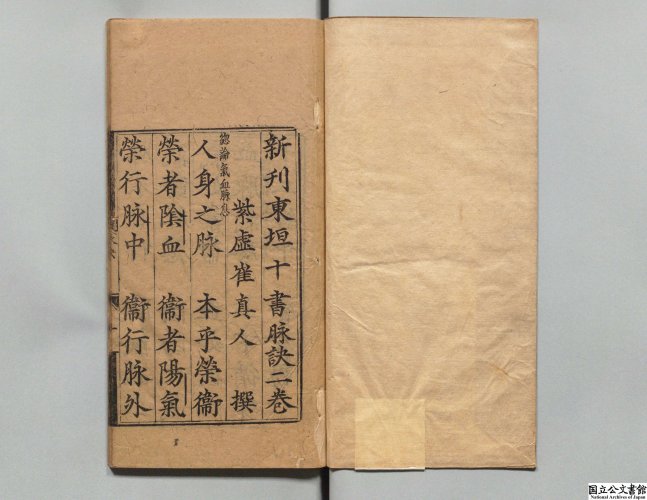 新刋東垣十書脉訣二巻
紫虛崔真人 撰
總論氣血脉息
人身之脉 本乎榮衞
榮者陰血 衞者陽氣
榮行脉中 衞行脉外
国立公文書館
National Archives of Japan